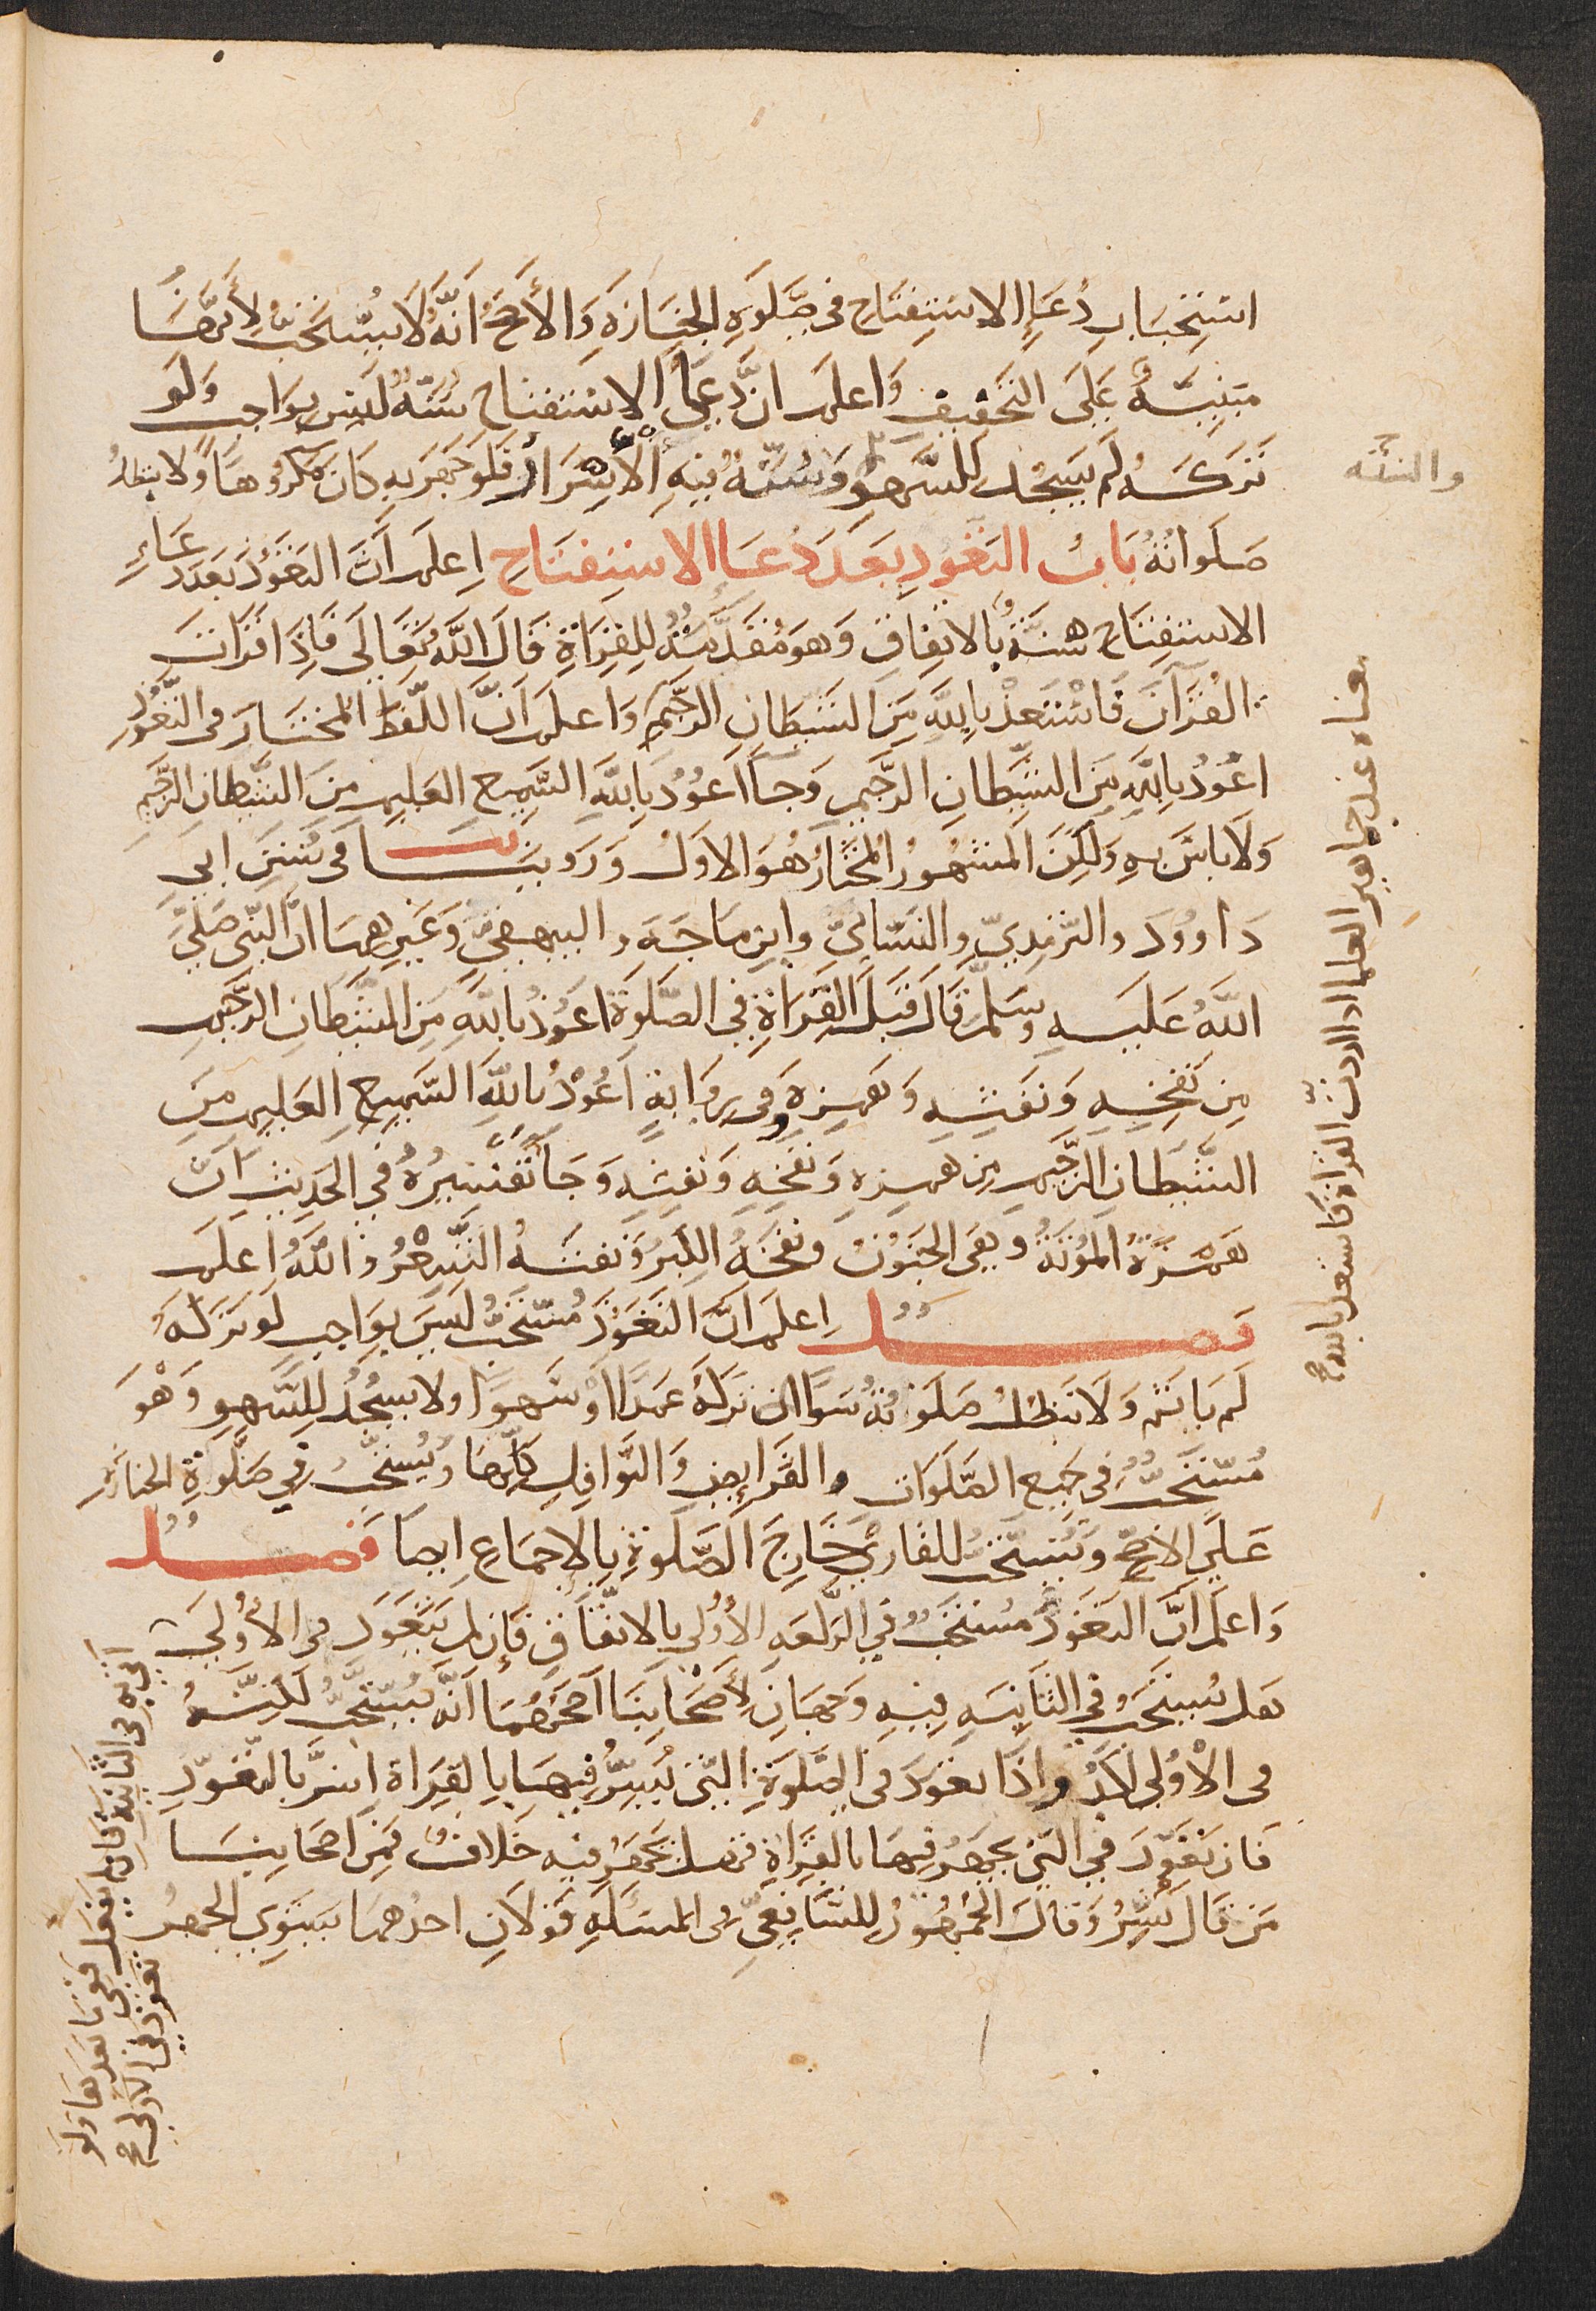 استحباب دُعاءِ الاستفتاح في صَلوةِ الجنازةِ والأصحُّ أنّه لا يُستَحبُّ لأنّها
مبنيّةٌ على التخفيف واعلم انّ دعاء الاستفتاح سُنّةٌ ليس بواجب ولو
تركه لم يسجُد للسَّهو وَالسُّنّة فيهِ الأسرَارُ فلو جهر به كان مكروهًا ولا يبطلُ
صلواتُهُ بَابُ التعوُّذِ بَعدَ دُعَاءِ الاستفتاح اِعلم أنّ التعوُّذَ بعد دعاءِ
الاستفتاح سُنّةٌ بالاتفاق وهو مُقدّمةٌ للقراةِ قال اللهُ تعالى فاِذا قراتَ
القرآنَ فاستعذْ باللهِ من الشيطان الرجيم واعلم انّ اللفظَ المختار في التعوُّذِ
اعوُذُ باللهِ من الشيطان الرجيم وجاء اعوُذُ باللهِ السّميع العليم منَ الشيطان الرجيم
ولا باس به ولكن المشهورُ المختارُ هو الاوّل وَرَوينا في سُنن ابي
دَاوودَ والترمذيّ والنسائيّ وابن ماجَه والبيهقيّ وغيرهما انّ النّبي صلّى
اللهُ عليه وسلم قال قبل القراةِ في الصلوة اعوذ باللهِ من الشيطان الرجيم
من نفخه ونفثه وهمزه وفى روايةٍ اعُوذُ باللهِ السّميعِ العليم من
الشيطان الرجيم من همزه ونفخه ونفثه وجاء تفسيرُهُ في الحديثِ انّ
همزَهُ المُوتَةُ وهي الجنونُ ونفخَهُ الكبرُ ونفثهُ الشِّعرُ واللهُ اعلم
فصـلٌ اِعلم انّ التعوُّذَ مُستحبٌّ ليس بواجبٍ لو تركَهُ
لم ياثم ولا تبطل صلوتُهُ سَوَاءٌ ان تركهُ عمدًا اوْ سَهوًا ولا يسجُدُ للسَّهوِ وهو
مُستحبٌّ في جميع الصلوات والفَرايِضِ والنوافلِ كلِّها ويُستحبُّ في صلوةِ الجنازةِ
على الاصحّ ويُستحبُّ للقاري خارِجَ الصلوةِ بالاجماع ايضا فصـلٌ
واعلم انّ التعوذَ مستحبٌّ في الركعةِ الأولى بالاتفاقِ فإن لم يتعوّذ في الأولى
هل يُستحبّ في الثانيةِ فيه وجهانِ لأصحابنا اصحّهما انّه يُستحبُّ لكنّه
في الأولى لاكدُ واذا تعوّذ في الصلوةِ التي يُسِرُّ فيها بالقراة اسرّ بالتعوّذِ
فان تعوّذ في التي يجهر فيها بالقراةِ فهل يجهر فيه خلافٌ فمن اصحابنا
من قال يُسِرُّ وقال الجمهورُ للشافعيِّ في المسئلةِ قولانِ احدهما يستوي الجهرُ
والسُّنّه
معناه عند جماهير العلما اذا اردت القراة فاستعذ بالله صح
اتى به في الثانية فان لم يفعل ففيما بعدها ولو
تعوذ في الاولى صح